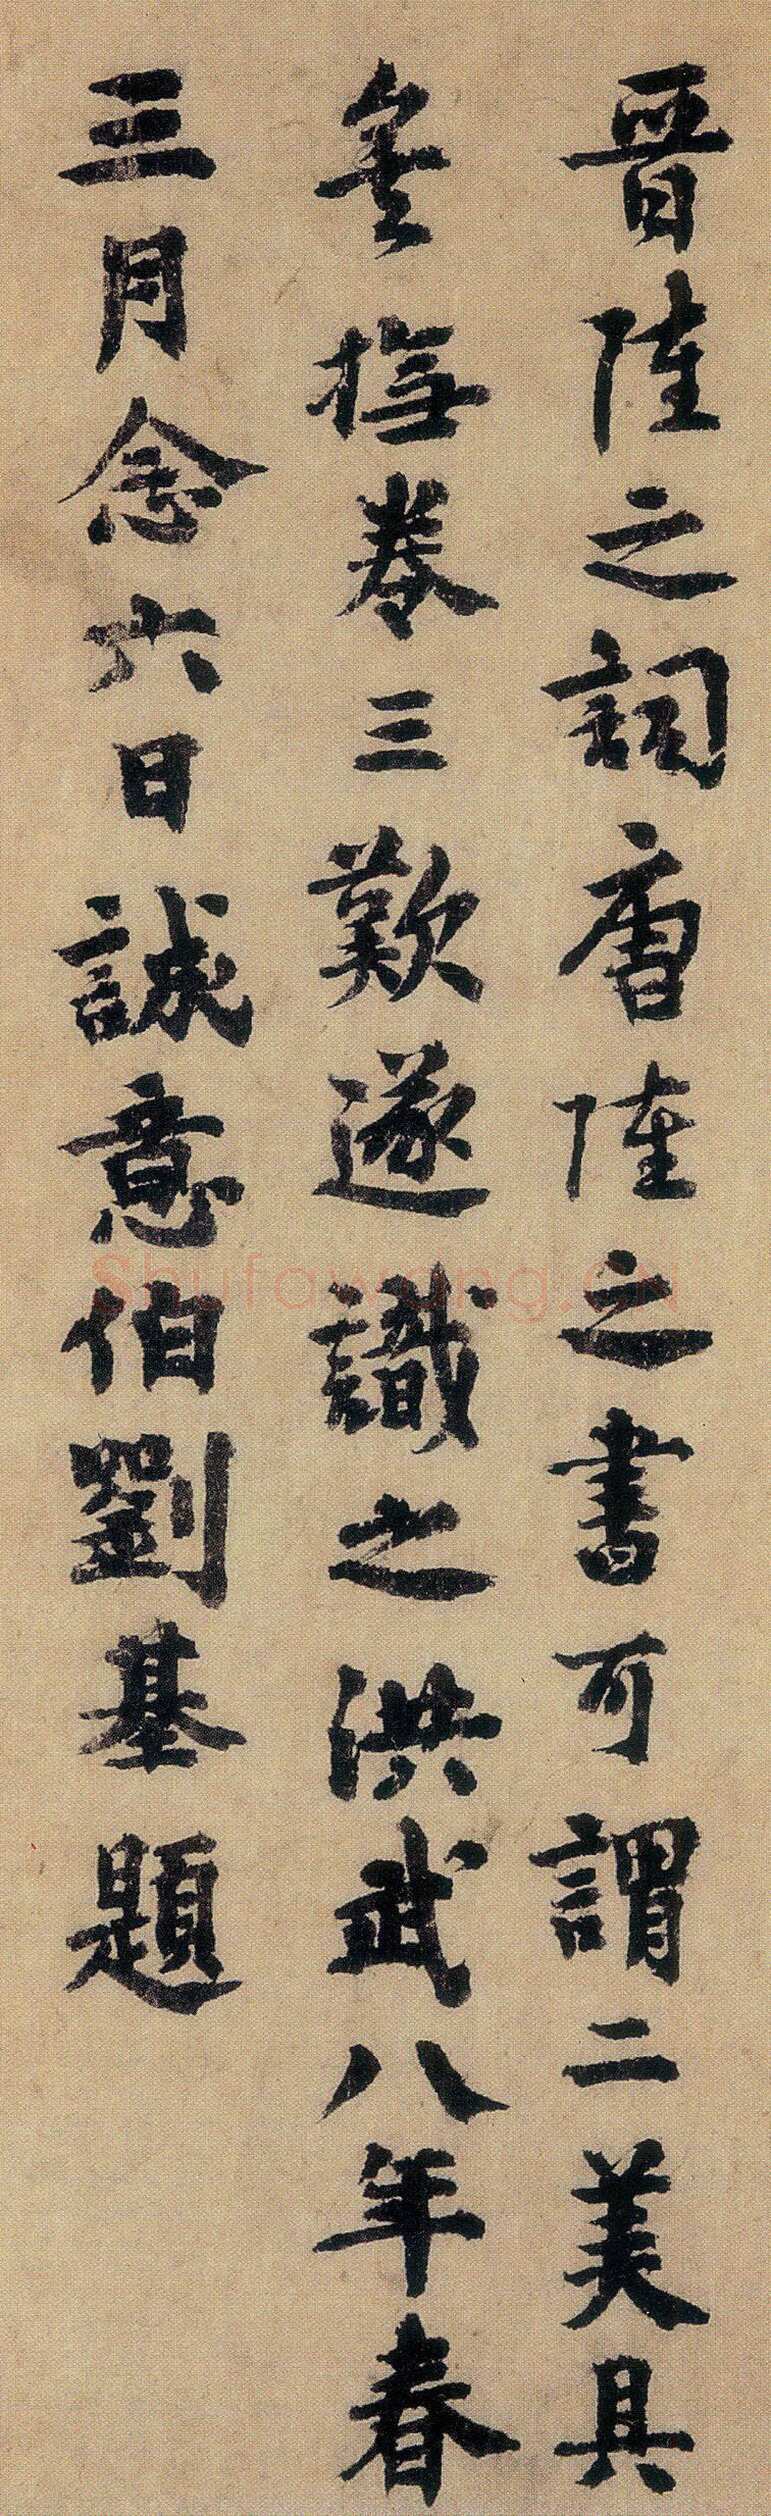 晉陸之詞唐陸之書可謂二美具
矣撫卷三歎遂識之洪武八年春
三月念六日誠意伯劉基題
shufawang.cn